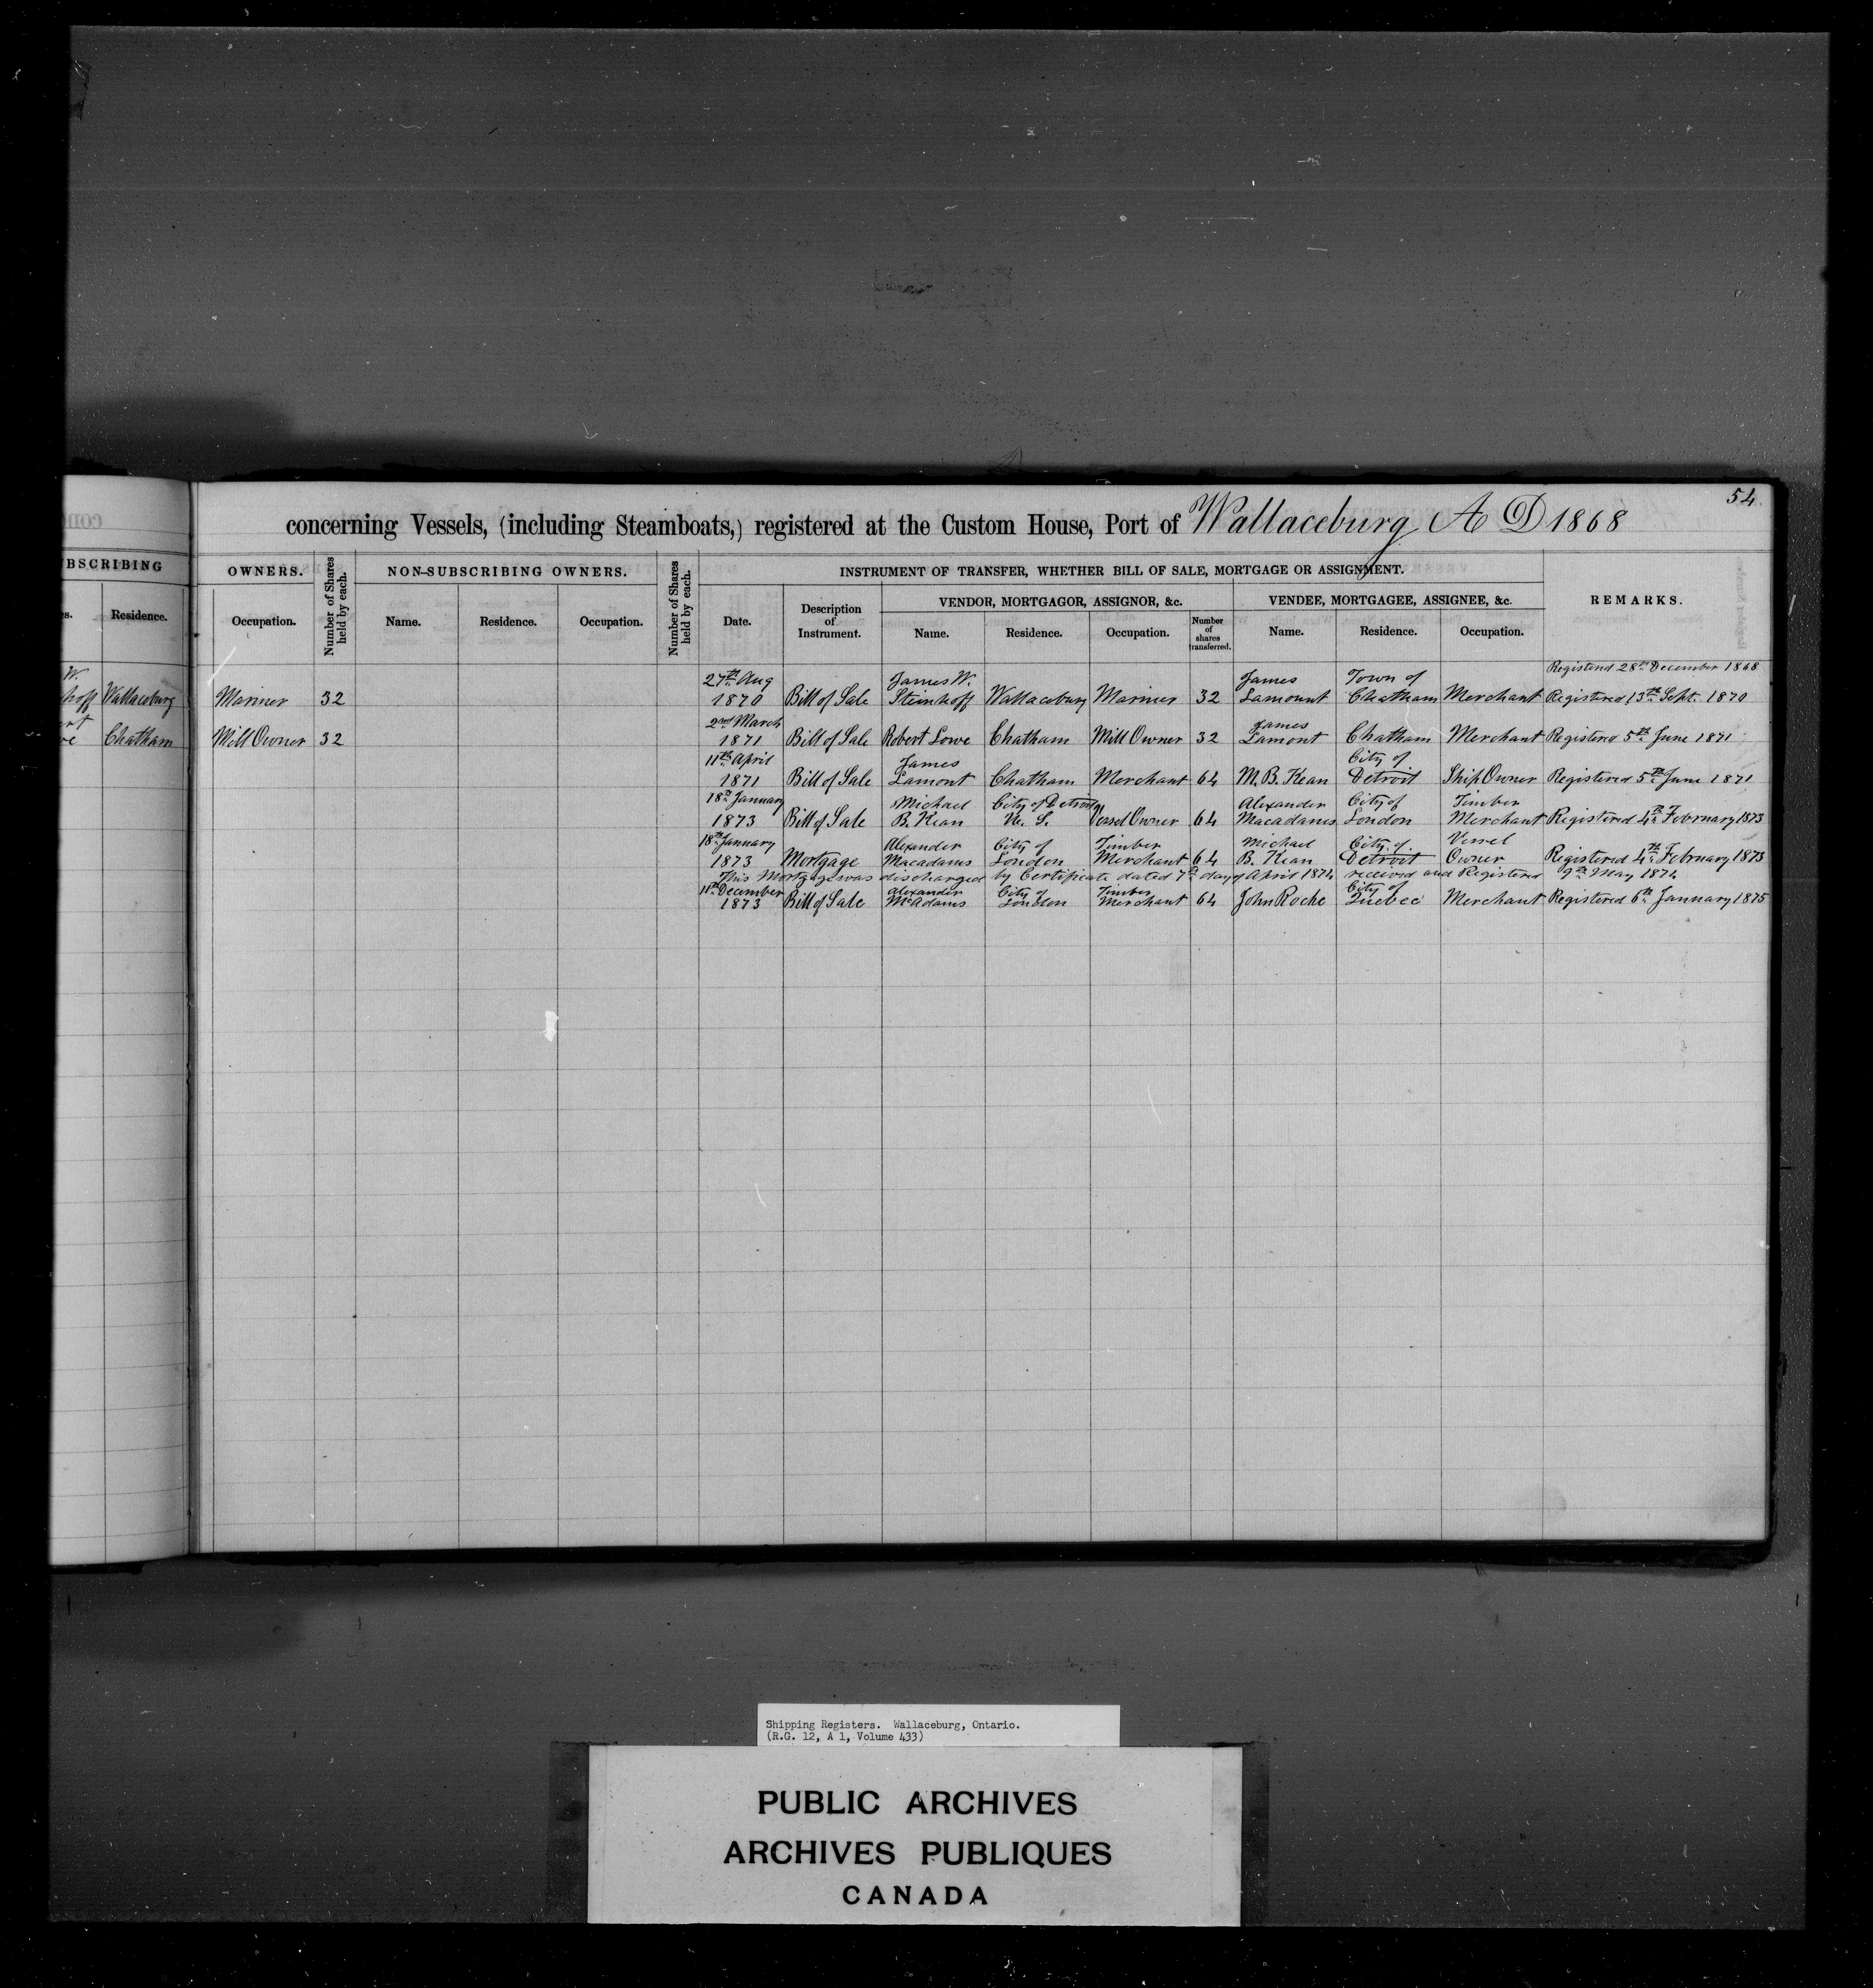 54
concerning Vessels, (including Steamboats,) registered at the Custom House, Port of Wallaceburg A D 1868
UBSCRIBING OWNERS. Number of Shares held by each. NON-SUBSCRIBING OWNERS. Number of Shares held by each. INSTRUMENT OF TRANSFER, WHETHER BILL OF SALE, MORTGAGE OR ASSIGNMENT. REMARKS.
VENDOR, MORTGAGOR, ASSIGNOR, &c. VENDEE, MORTGAGEE, ASSIGNEE, &c.
Residence. Occupation. Name. Residence. Occupation. Date. Description of Instrument. Name. Residence. Occupation. Number of shares transferred. Name. Residence. Occupation.
Registered 28th December 1868
W. 27th Aug James W. James Town of
hoff Wallaceburg Mariner 32 1870 Bill of Sale Steinhoff Wallaceburg Mariner 32 Lamount Chatham Merchant Registered 13th Sept. 1870
rt 2nd March James
we Chatham Mill Owner 32 1871 Bill of Sale Robert Lowe Chatham Mill Owner 32 Lamont Chatham Merchant Registered 5th June 1871
11th April James City of
1871 Bill of Sale Lamont Chatham Merchant 64 M. B. Kean Detroit Ship Owner Registered 5th June 1871
18th January Michael City of Detroit Alexander City of Timber
1873 Bill of Sale B. Kean U. S. Vessel Owner 64 Macadams London Merchant Registered 4th February 1873
18th January Alexander City of Timber Michael City of Vessel
1873 Mortgage Macadams London Merchant 64 B. Kean Detroit Owner Registered 4th February 1873
This Mortgage was discharged by Certificate dated 7th day of April 1874 received and Registered 9th May 1874
11th December Alexander City of Timber City of
1873 Bill of Sale McAdams London Merchant 64 John Roche Quebec Merchant Registered 6th January 1875
Shipping Registers. Wallaceburg, Ontario.
(R.G. 12, A 1, Volume 433)
PUBLIC ARCHIVES
ARCHIVES PUBLIQUES
CANADA